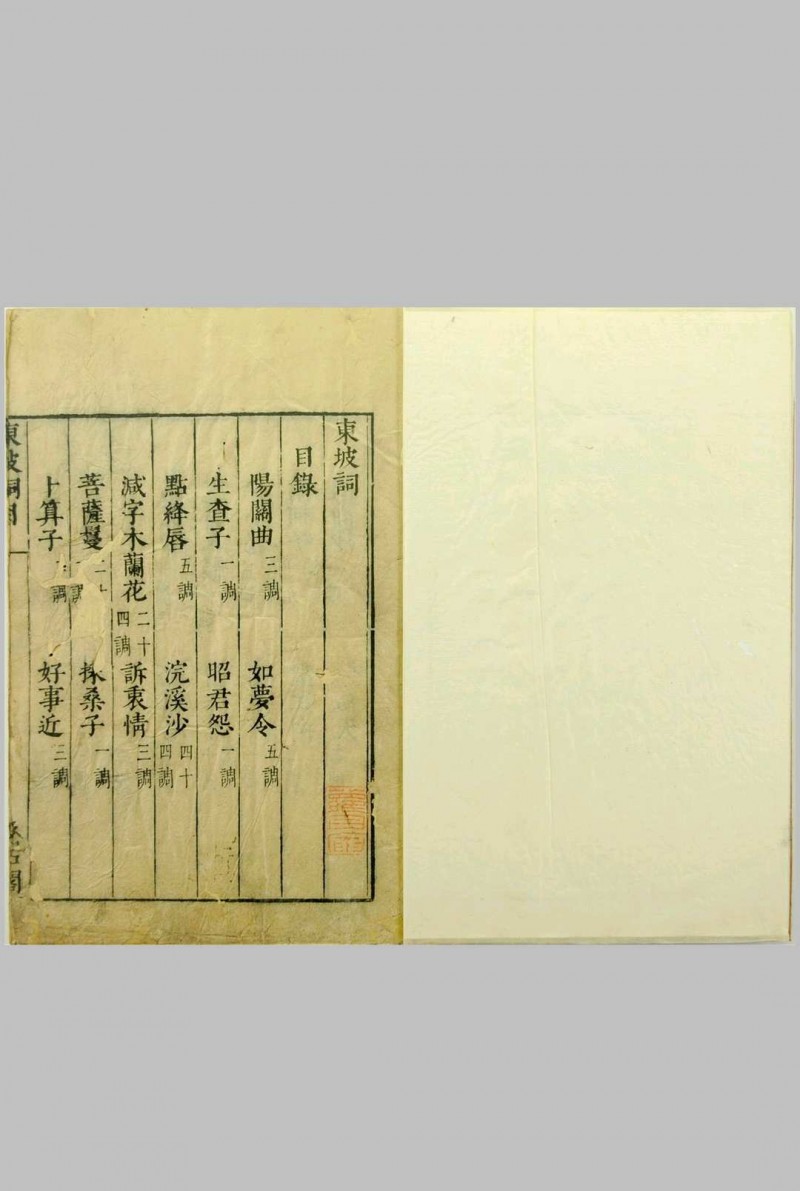 東坡詞
目錄
陽關曲 三調 如夢令 五調
生查子 一調 昭君怨 一調
點絳唇 五調 浣溪沙 四十四調
減字木蘭花 二十四調 訴衷情 三調
菩薩蠻 採桑子 一調
卜算子 調 好事近 三調
東坡詞目 一 古閣